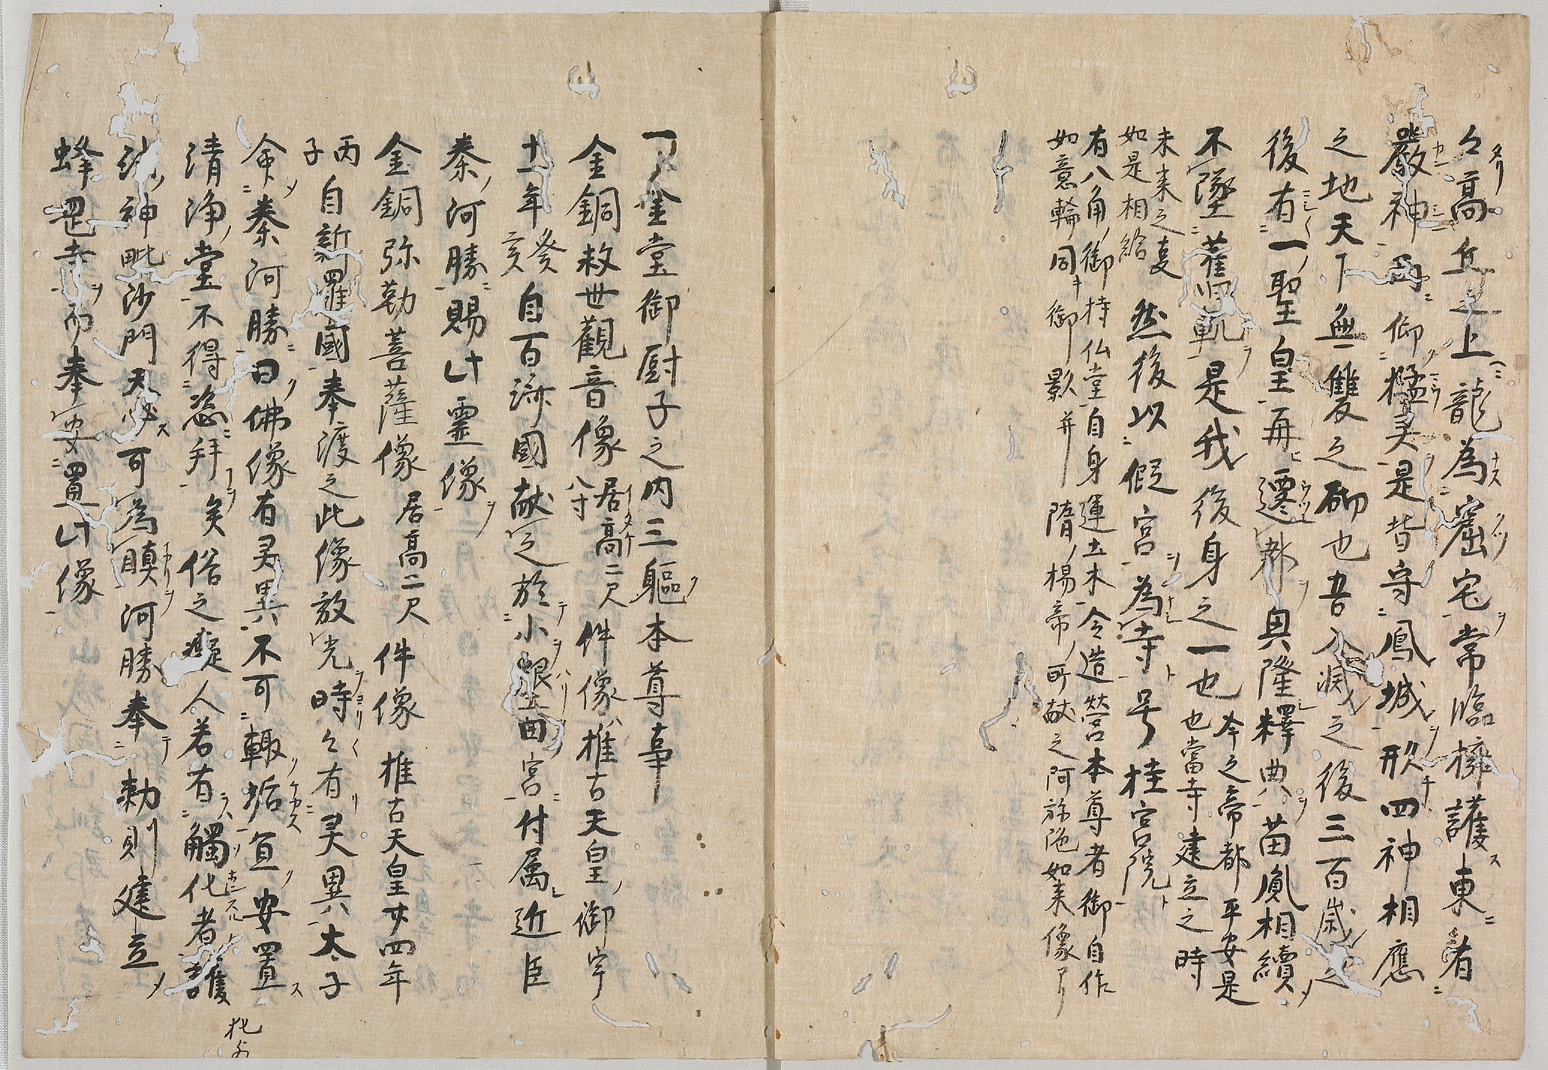 々高丘之上龍為窟宅常臨擁護東有
嚴神西仰猛灵是皆守鳳城形四神相應
之地天下無雙之砌也吾入滅之後三百歳之
後有一聖皇再遷都興隆釋典苗胤相續
不墜舊軌是我後身之一也今之帝都平安是也當寺建立之時
未来之変如是相給然後以假宮為寺号桂宮院
有八角御持仏堂自身運土木令造営本尊者御自作
如意輪同御影并隋楊帝所献之阿弥陁如来像
一金堂御厨子之内三軀本尊事
金銅救世觀音像居高二尺八寸件像推古天皇御宇
十一年癸亥自百済國献之於小墾田宮付属近臣
秦河勝賜此霊像
金銅弥勒菩薩像居高二尺件像推古天皇廿四年
丙子自新羅國奉渡之此像放光時々有灵異太子
命秦河勝曰佛像有灵異不可輙垢宜安置
清浄堂不得恣拜矣俗之癡人若有觸化者護
法神毗沙門天必可為瞋河勝奉勅則建立
蜂罡寺而奉安置此像